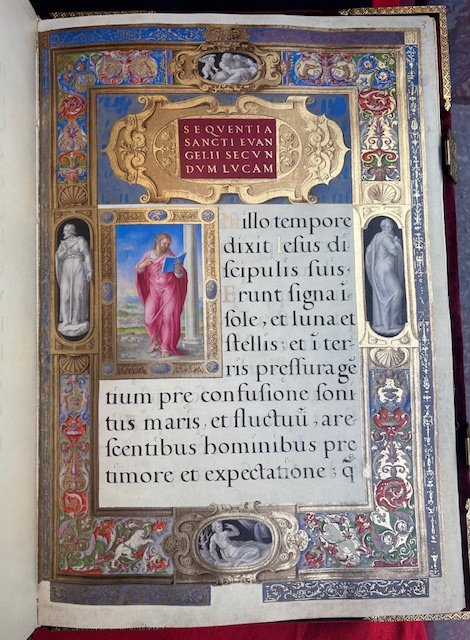 SEQVENTIA
SANCTI EVAN
GELII SECVN
DVM LVCAM
N illo tempore
dixit Ieſus di
ſcipulis ſuis·
Erunt ſigna ī
ſole, et luna et
ſtellis; et ī ter
ris preſſura gē
tium pre confuſione ſoni
tus maris, et fluctuū, are
ſcentibus hominibus pre
timore et expectatione; q̄